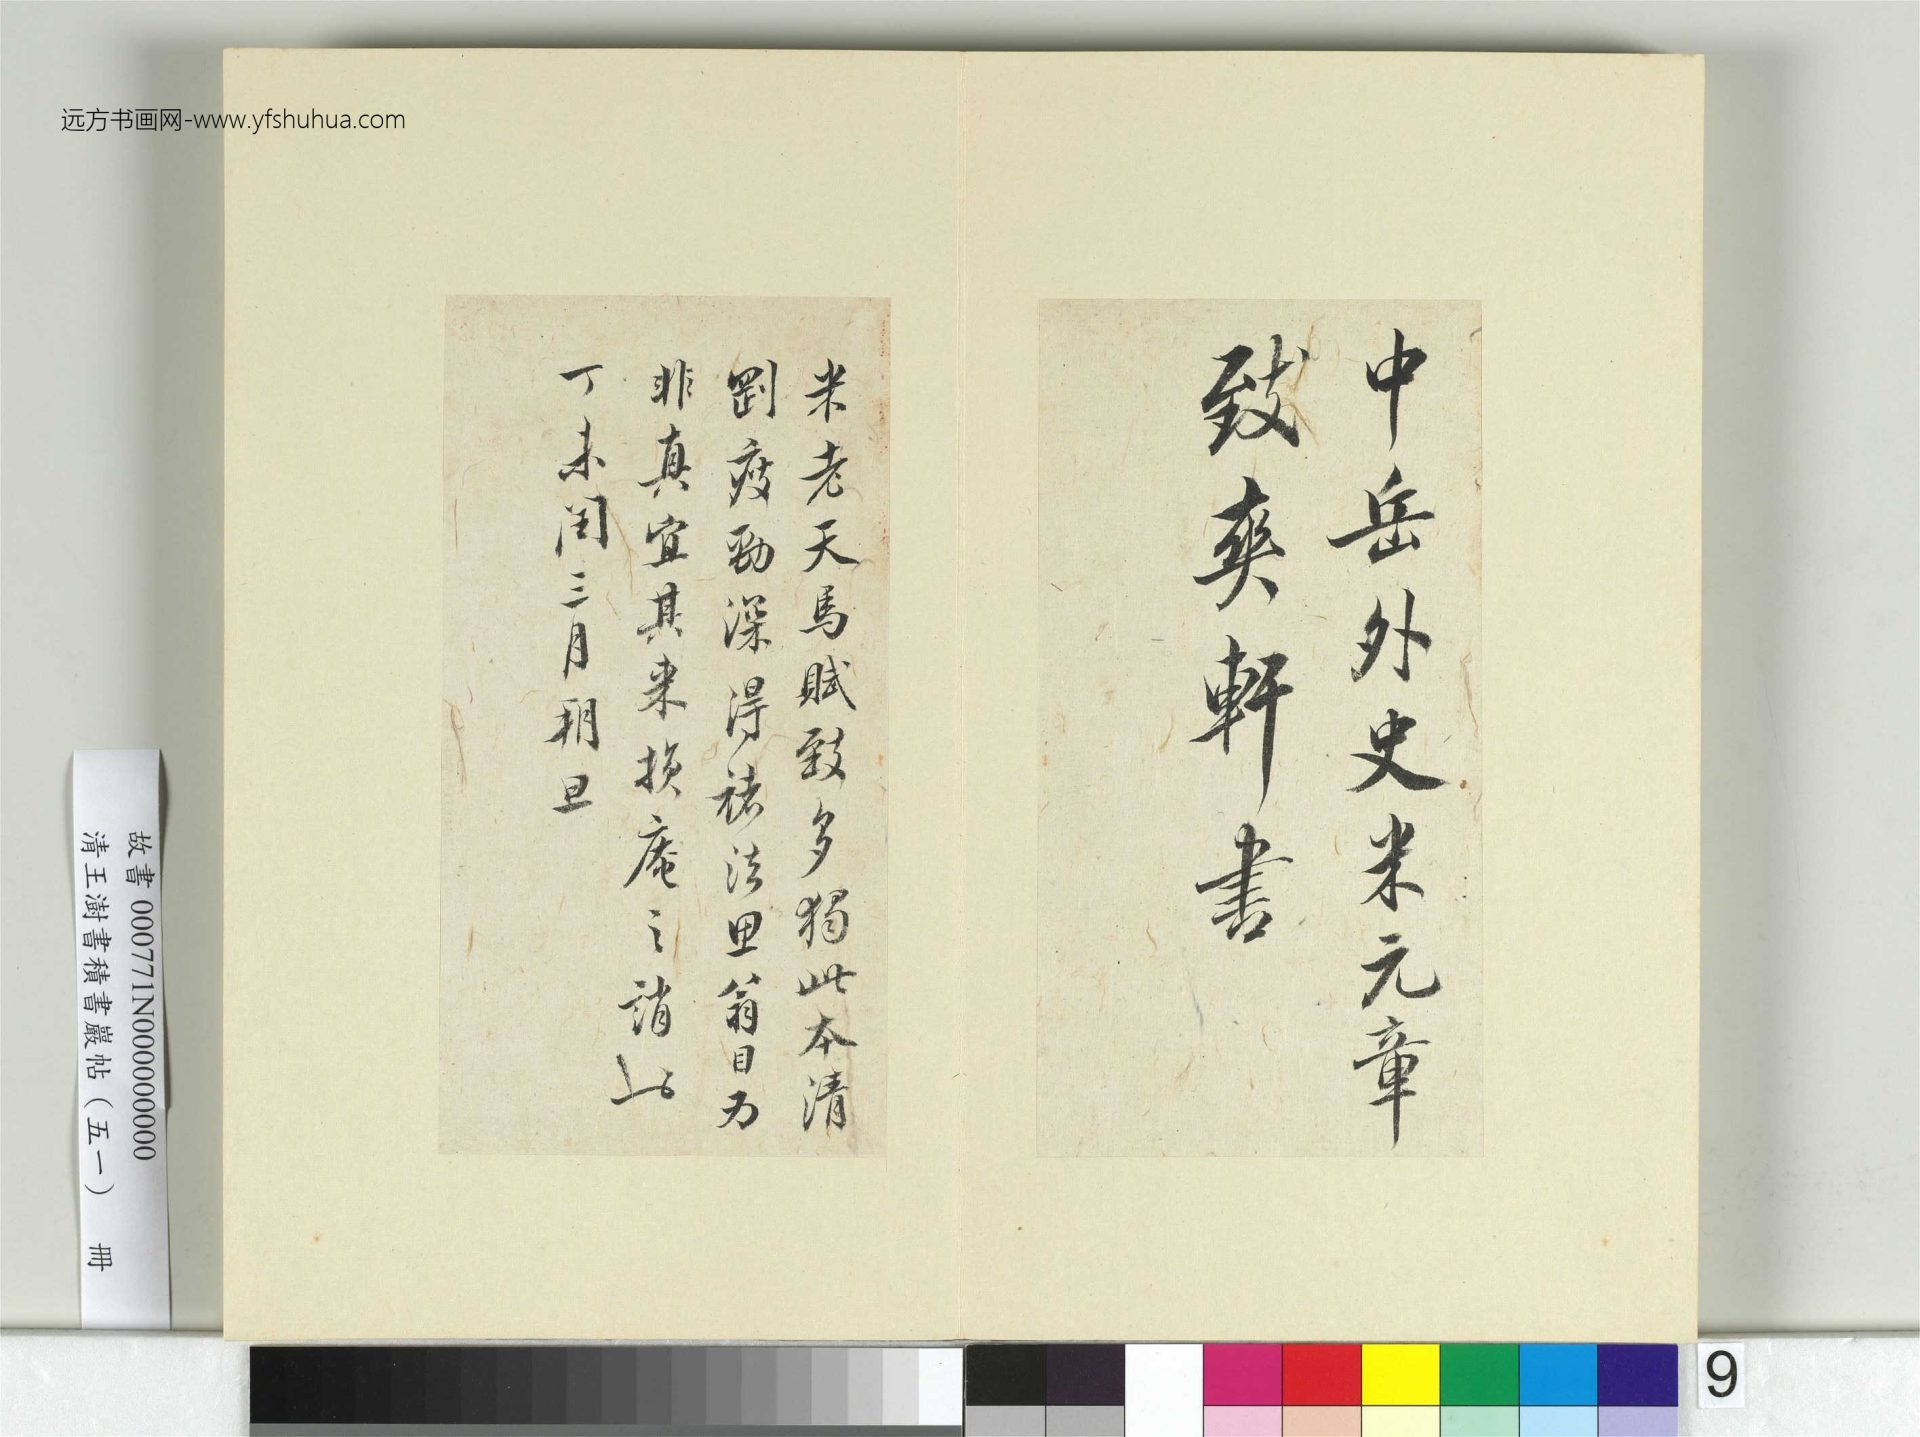 远方书画网-www.yfshuhua.com
中岳外史米元章
致爽軒書
米老天馬賦致多獨此本清
劉痩勁深得褚法思翁目為
非真宜其来損庵之誚也
丁未閏三月朔旦
故書 000771N000000000
清王澍書積書巖帖(五一) 冊
9